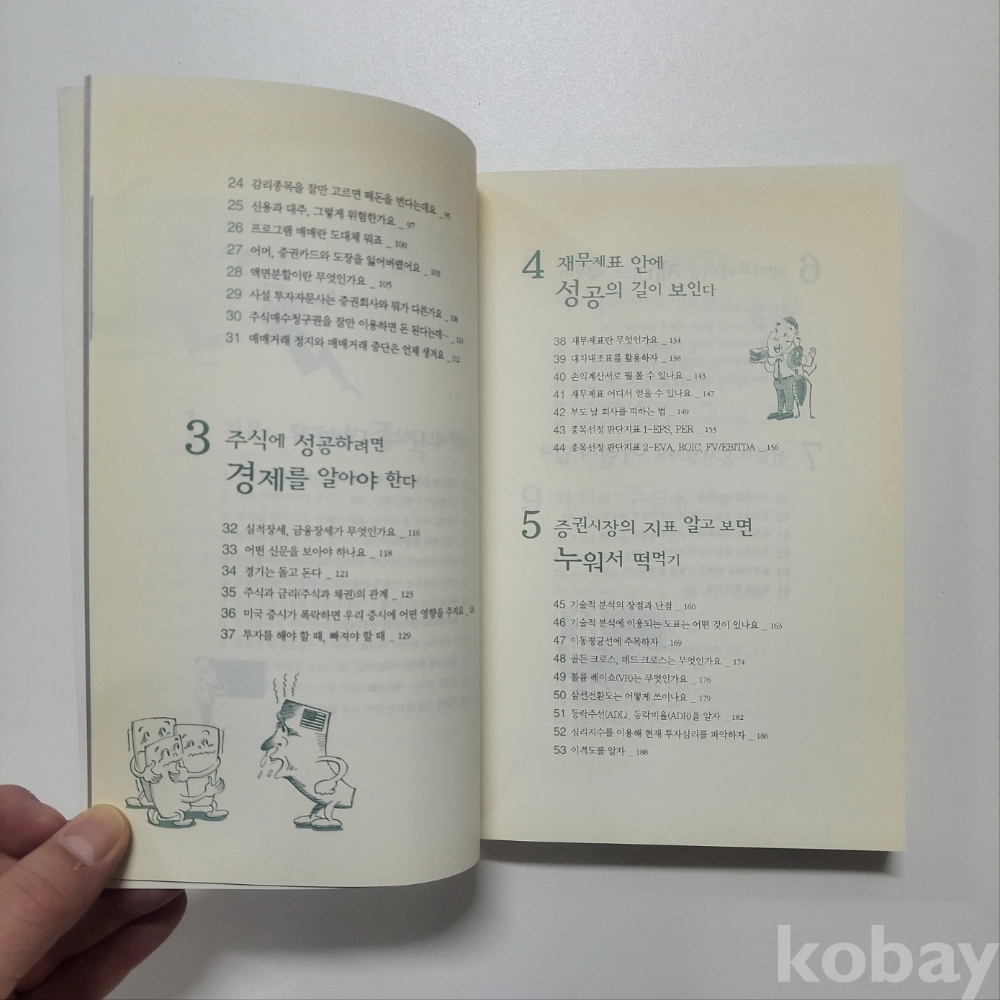 24 감리종목을 잘만 고르면 떼돈을 번다는데요 _ 95
25 신용과 대주, 그렇게 위험한가요 _ 97
26 프로그램 매매란 도대체 뭐죠 _ 100
27 어머, 증권카드와 도장을 잃어버렸어요 _ 103
28 액면분할이란 무엇인가요 _ 105
29 사설 투자자문사는 증권회사와 뭐가 다른가요 _ 108
30 주식매수청구권을 잘만 이용하면 돈 된다는데… _ 110
31 매매거래 정지와 매매거래 중단은 언제 생겨요 _ 112
3 주식에 성공하려면
경제를 알아야 한다
32 실적장세, 금융장세가 무엇인가요 _ 116
33 어떤 신문을 보아야 하나요 _ 118
34 경기는 돌고 돈다 _ 121
35 주식과 금리(주식과 채권)의 관계 _ 123
36 미국 증시가 폭락하면 우리 증시에 어떤 영향을 주지요
37 투자를 해야 할 때, 빠져야 할 때 _ 129
4 재무제표 안에
성공의 길이 보인다
38 재무제표란 무엇인가요 _ 134
39 대차대조표를 활용하자 _ 138
40 손익계산서로 뭘 볼 수 있나요 _ 143
41 재무제표 어디서 얻을 수 있나요 _ 147
42 부도 날 회사를 피하는 법 _ 149
43 종목선정 판단지표 1-EPS, PER _ 153
44 종목선정 판단지표 2-EVA, ROIC, FV/EBITDA _ 156
5 증권시장의 지표 알고 보면
누워서 떡먹기
45 기술적 분석의 장점과 단점 _ 160
46 기술적 분석에 이용되는 도표는 어떤 것이 있나요 _ 163
47 이동평균선에 주목하자 _ 169
48 골든 크로스, 데드 크로스는 무엇인가요 _ 174
49 볼륨 레이쇼(VR)는 무엇인가요 _ 176
50 삼선전환도는 어떻게 쓰이나요 _ 179
51 등락주선(ADL), 등락비율(ADR)을 알자 _ 182
52 심리지수를 이용해 현재 투자심리를 파악하자 _ 186
53 이격도를 알자 _ 188
kobay